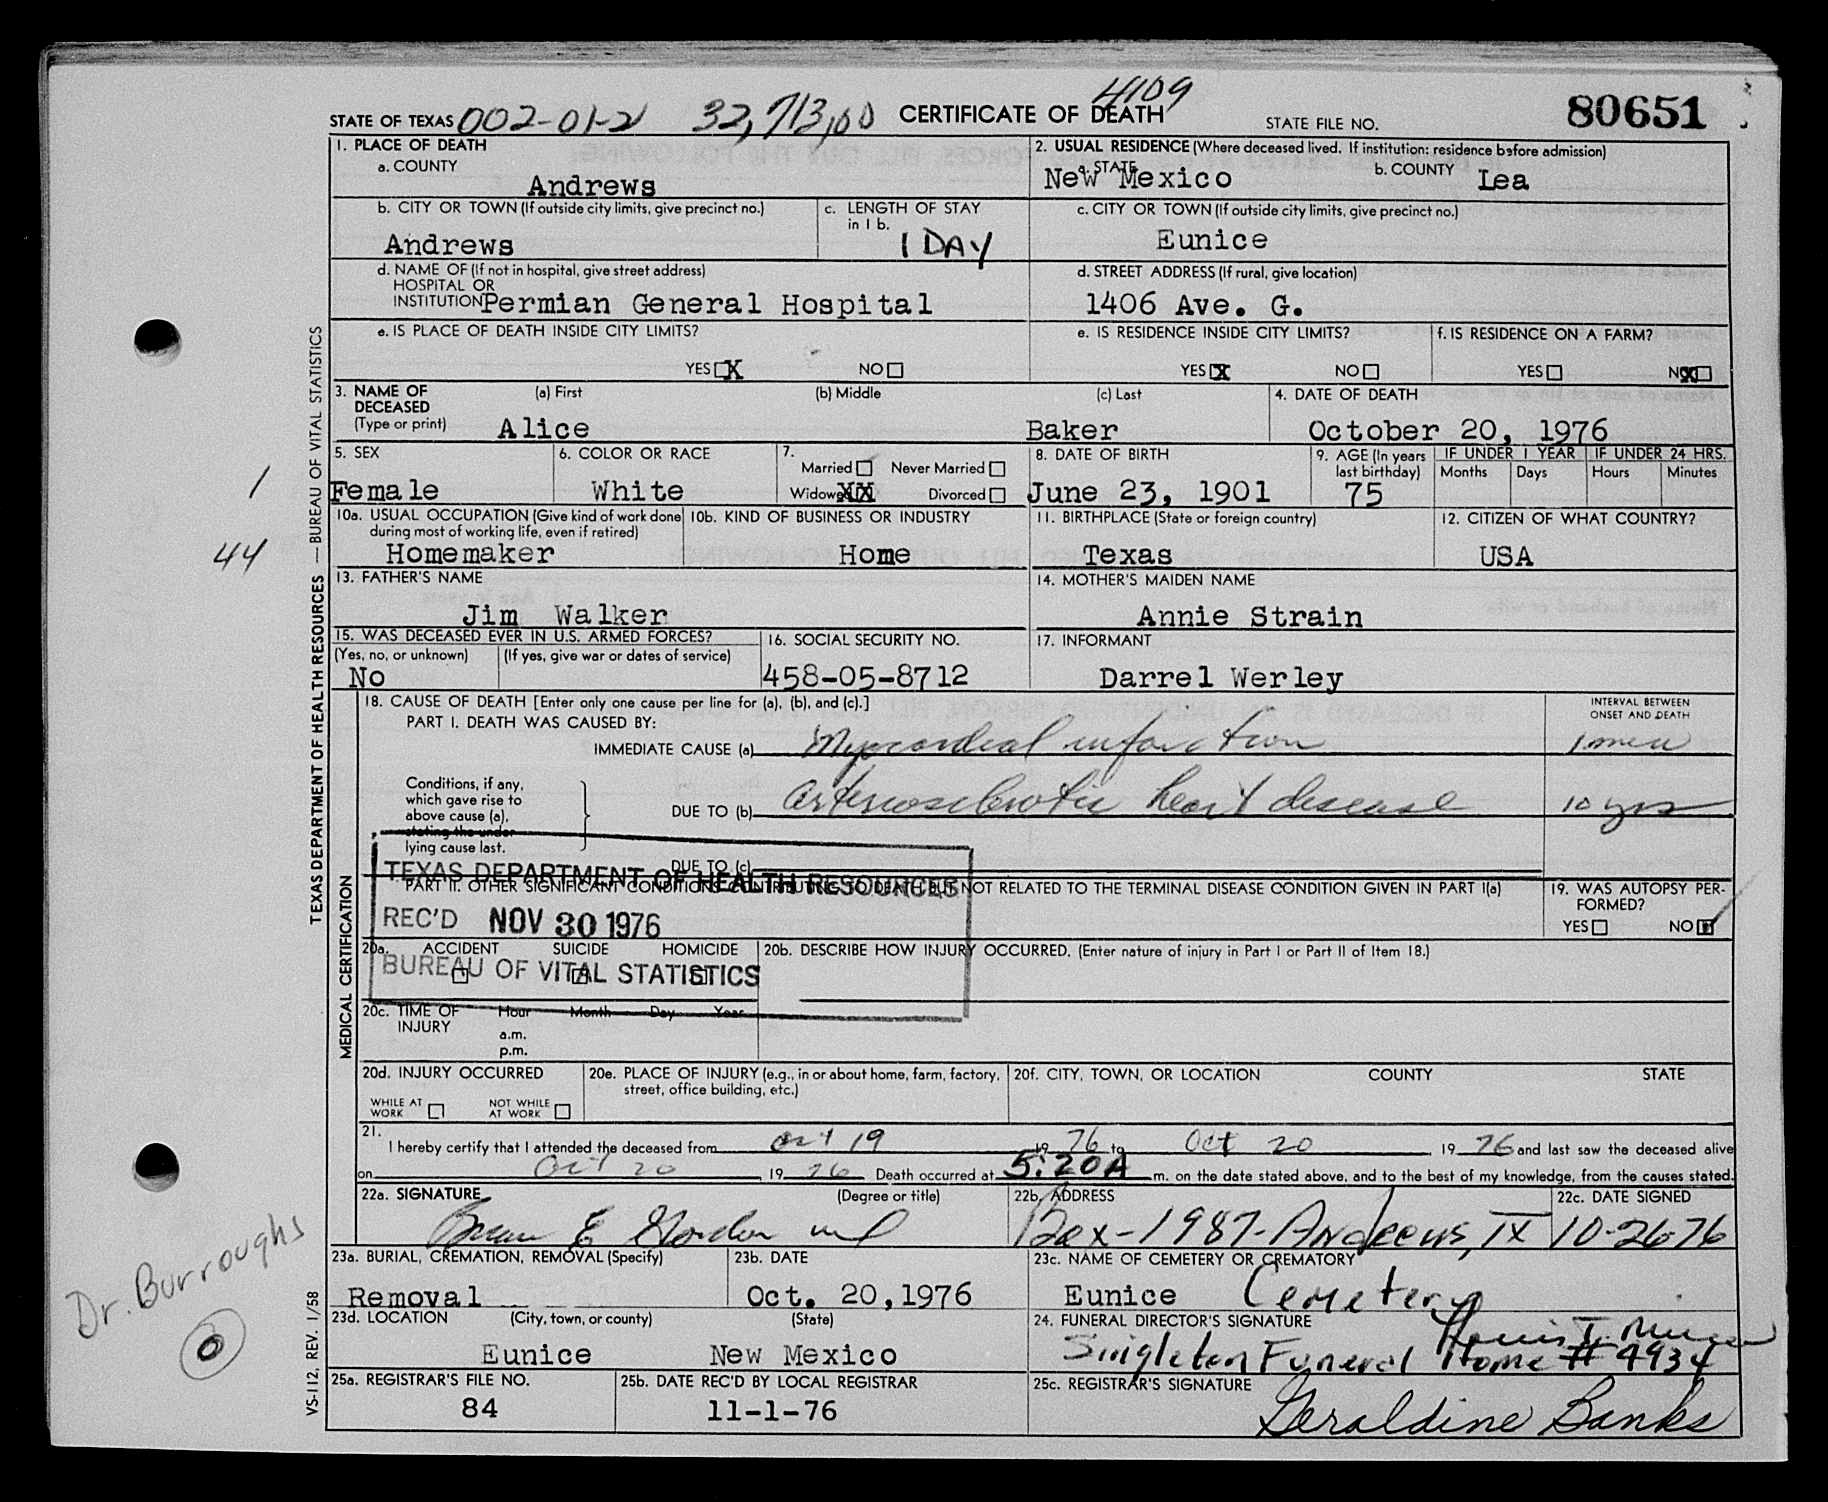 4109
STATE OF TEXAS 002-01-2 32,713,00 CERTIFICATE OF DEATH STATE FILE NO. 80651
1. PLACE OF DEATH
a. COUNTY
Andrews
2. USUAL RESIDENCE (Where deceased lived. If institution: residence before admission)
a. STATE
New Mexico
b. COUNTY Lea
b. CITY OR TOWN (If outside city limits, give precinct no.)
Andrews
c. LENGTH OF STAY
in 1 b.
1 DAY
c. CITY OR TOWN (If outside city limits, give precinct no.)
Eunice
d. NAME OF (If not in hospital, give street address)
HOSPITAL OR
INSTITUTION Permian General Hospital
d. STREET ADDRESS (If rural, give location)
1406 Ave. G.
e. IS PLACE OF DEATH INSIDE CITY LIMITS?
YES X NO
e. IS RESIDENCE INSIDE CITY LIMITS?
YES X NO
f. IS RESIDENCE ON A FARM?
YES NO X
3. NAME OF
DECEASED
(Type or print)
(a) First (b) Middle (c) Last
Alice Baker
4. DATE OF DEATH
October 20, 1976
5. SEX
Female
6. COLOR OR RACE
White
7.
Married Never Married
Widowed XX Divorced
8. DATE OF BIRTH
June 23, 1901
9. AGE (In years
last birthday)
75
IF UNDER 1 YEAR
Months Days
IF UNDER 24 HRS.
Hours Minutes
1
44
10a. USUAL OCCUPATION (Give kind of work done
during most of working life, even if retired)
Homemaker
10b. KIND OF BUSINESS OR INDUSTRY
Home
11. BIRTHPLACE (State or foreign country)
Texas
12. CITIZEN OF WHAT COUNTRY?
USA
13. FATHER'S NAME
Jim Walker
14. MOTHER'S MAIDEN NAME
Annie Strain
15. WAS DECEASED EVER IN U.S. ARMED FORCES?
(Yes, no, or unknown) (If yes, give war or dates of service)
No
16. SOCIAL SECURITY NO.
458-05-8712
17. INFORMANT
Darrel Werley
18. CAUSE OF DEATH [Enter only one cause per line for (a), (b), and (c).]
PART I. DEATH WAS CAUSED BY:
IMMEDIATE CAUSE (a) Myocardial infarction
INTERVAL BETWEEN
ONSET AND DEATH
1 min
Conditions, if any,
which gave rise to
above cause (a),
stating the under
lying cause last.
DUE TO (b) arteriosclerotic heart disease 10 yrs
DUE TO (c)
PART II. OTHER SIGNIFICANT CONDITIONS CONTRIBUTING TO DEATH BUT NOT RELATED TO THE TERMINAL DISEASE CONDITION GIVEN IN PART I(a)
TEXAS DEPARTMENT OF HEALTH RESOURCES
REC'D NOV 30 1976
BUREAU OF VITAL STATISTICS
19. WAS AUTOPSY PER-
FORMED?
YES NO
20a. ACCIDENT SUICIDE HOMICIDE
20b. DESCRIBE HOW INJURY OCCURRED. (Enter nature of injury in Part I or Part II of Item 18.)
20c. TIME OF
INJURY
Hour Month Day Year
a.m.
p.m.
20d. INJURY OCCURRED
WHILE AT
WORK
NOT WHILE
AT WORK
20e. PLACE OF INJURY (e.g., in or about home, farm, factory,
street, office building, etc.)
20f. CITY, TOWN, OR LOCATION COUNTY STATE
21.
I hereby certify that I attended the deceased from Oct 19 19 76 to Oct 20, 19 76 and last saw the deceased alive
on Oct 20, 19 76 Death occurred at 5:20A m. on the date stated above, and to the best of my knowledge, from the causes stated.
22a. SIGNATURE (Degree or title)
E Gordon md
22b. ADDRESS
Box-1987-Andrews, TX
22c. DATE SIGNED
10-26-76
23a. BURIAL, CREMATION, REMOVAL (Specify)
Removal
23b. DATE
Oct. 20, 1976
23c. NAME OF CEMETERY OR CREMATORY
Eunice Cemetery
23d. LOCATION (City, town, or county) (State)
Eunice New Mexico
24. FUNERAL DIRECTOR'S SIGNATURE
Singleton Funeral Home # 4934
25a. REGISTRAR'S FILE NO.
84
25b. DATE REC'D BY LOCAL REGISTRAR
11-1-76
25c. REGISTRAR'S SIGNATURE
Geraldine Banks
TEXAS DEPARTMENT OF HEALTH RESOURCES — BUREAU OF VITAL STATISTICS
MEDICAL CERTIFICATION
VS-112, REV. 1/58
Dr. Burroughs
0